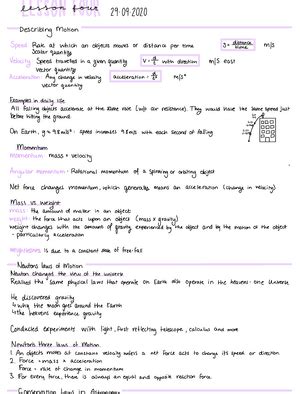 LESSON FOUR
lesson four 29.09.2020
Describing Motion
Speed Rate at which an objects moves or distance per time S = distance/time m/s
Scalar quantity
Velocity Speed travelled in a given quantity with direction m/s east
vector quantity
Acceleration Any change in velocity acceleration = m/s²
vector quantity
Examples in daily life
All falling objects accelerate at the same rate (w/o air resistance). They would have the same speed just
before hitting the ground
On Earth, g ≈ 9.8 m/s² : speed increases 9.8 m/s with each second of falling
Momentum
Momentum mass × velocity
Angular momentum Rotational momentum of a spinning or orbiting object
Net force changes momentum, which generally means an acceleration (change in velocity)
Mass vs weight
mass the amount of matter in an object
weight the force that acts upon an object (mass × gravity)
weight changes with the amount of gravity experienced by the object and by the motion of the object
- particularly acceleration
weightlessness is due to a constant state of free-fall
Newtons laws of Motion
Newton changed the view of the universe
Realised the same physical laws that operate on Earth also operate in the heavens: one universe
He discovered gravity
why the moon goes around the Earth
the heavens experience gravity
Conducted experiments with light, first reflecting telescope, calculus and more
Newton's three laws of Motion
1. An objects moves at constant velocity unless a net force acts to change its speed or direction
2. Force = mass × acceleration
Force = rate of change in momentum
3. For every force, there is always an equal and opposite reaction force
Conservation laws in Astronomy